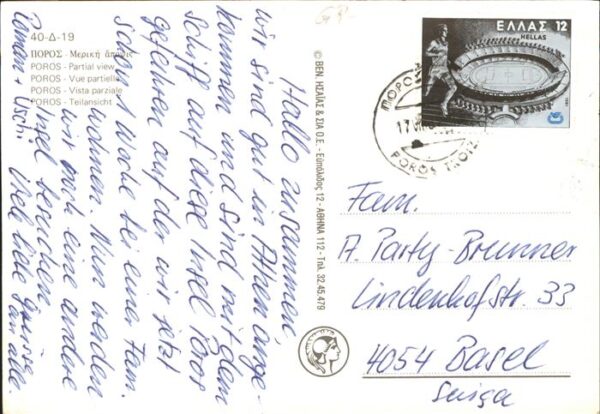 40-Δ-19
ΠΟΡΟΣ - Μερική άποψις
POROS - Partial view
POROS - Vue partielle
POROS - Vista parziale
POROS - Teilansicht
Hallo zusammen,
wir sind gut in Athen ange-
kommen und sind mit dem
Schiff auf diese Insel Poros
gefahren auf der wir jetzt
schon 1 Woche bei einer Fam.
wohnen. Nun werden
wir noch eine andere
Insel besuchen.
Viele liebe Grüsse
an alle.
Roman + Uschi
© ΒΕΝ. ΗΣΑΪΑΣ & ΣΙΑ Ο.Ε. - Ευπυλίδος 12 - ΑΘΗΝΑ 112 - Τηλ. 32.45.479
ΕΛΛΑΣ 12
HELLAS
ΠΟΡΟΣ
17
POROS
Fam.
A. Party-Brunner
Lindenhofstr. 33
4054 Basel
Suiza